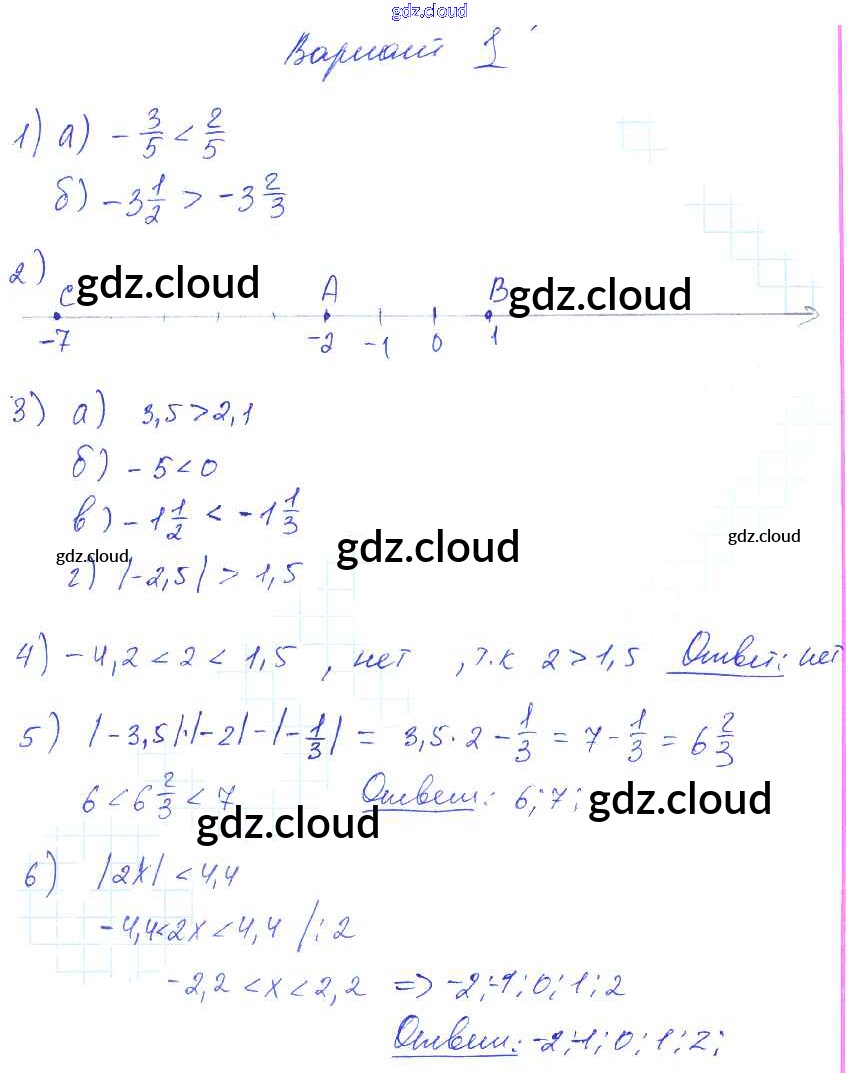 gdz.cloud
Вариант 1
1) а) -3/5 < 2/5
б) -3 1/2 > -3 2/3
2)
C gdz.cloud A B gdz.cloud
-7 -2 -1 0 1
3) а) 3,5 > 2,1
б) -5 < 0
в) -1 1/2 < -1 1/3
gdz.cloud gdz.cloud gdz.cloud
г) |-2,5| > 1,5
4) -4,2 < 2 < 1,5 , нет , т.к 2 > 1,5 Ответ: нет
5) |-3,5|·|-2|-|-1/3| = 3,5·2 - 1/3 = 7 - 1/3 = 6 2/3
6 < 6 2/3 < 7 Ответ: 6; 7;
gdz.cloud gdz.cloud
6) |2x| < 4,4
-4,4<2x < 4,4 |:2
-2,2 < x < 2,2 => -2;-1; 0; 1; 2
Ответ: -2;-1; 0; 1; 2;